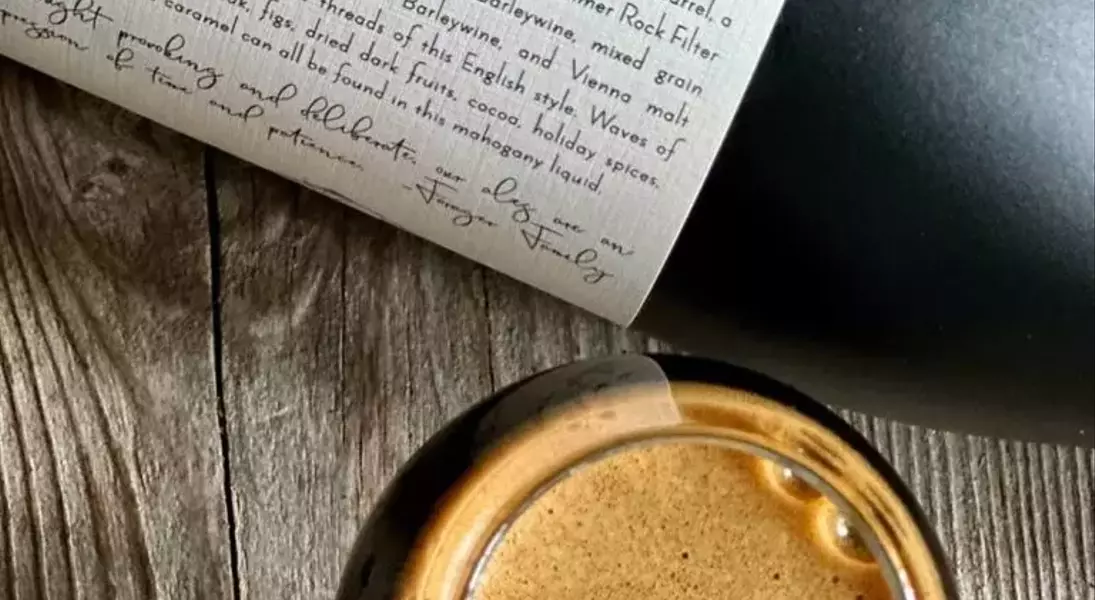 arrel, a
mer Rock Filter
arleywine, mixed grain
Barleywine, and Vienna malt
threads of this English style. Waves of
figs, dried dark fruits, cocoa, holiday spices,
caramel can all be found in this mahogany liquid.
provoking and deliberate, our ales are an
of time and patience. -Forager Family